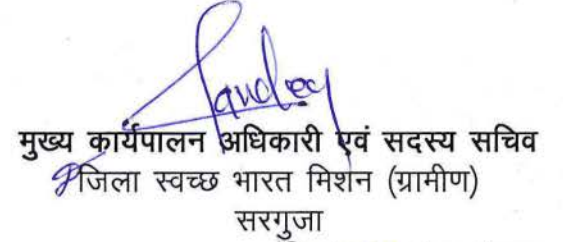 मुख्य कार्यपालन अधिकारी एवं सदस्य सचिव
जिला स्वच्छ भारत मिशन (ग्रामीण)
सरगुजा